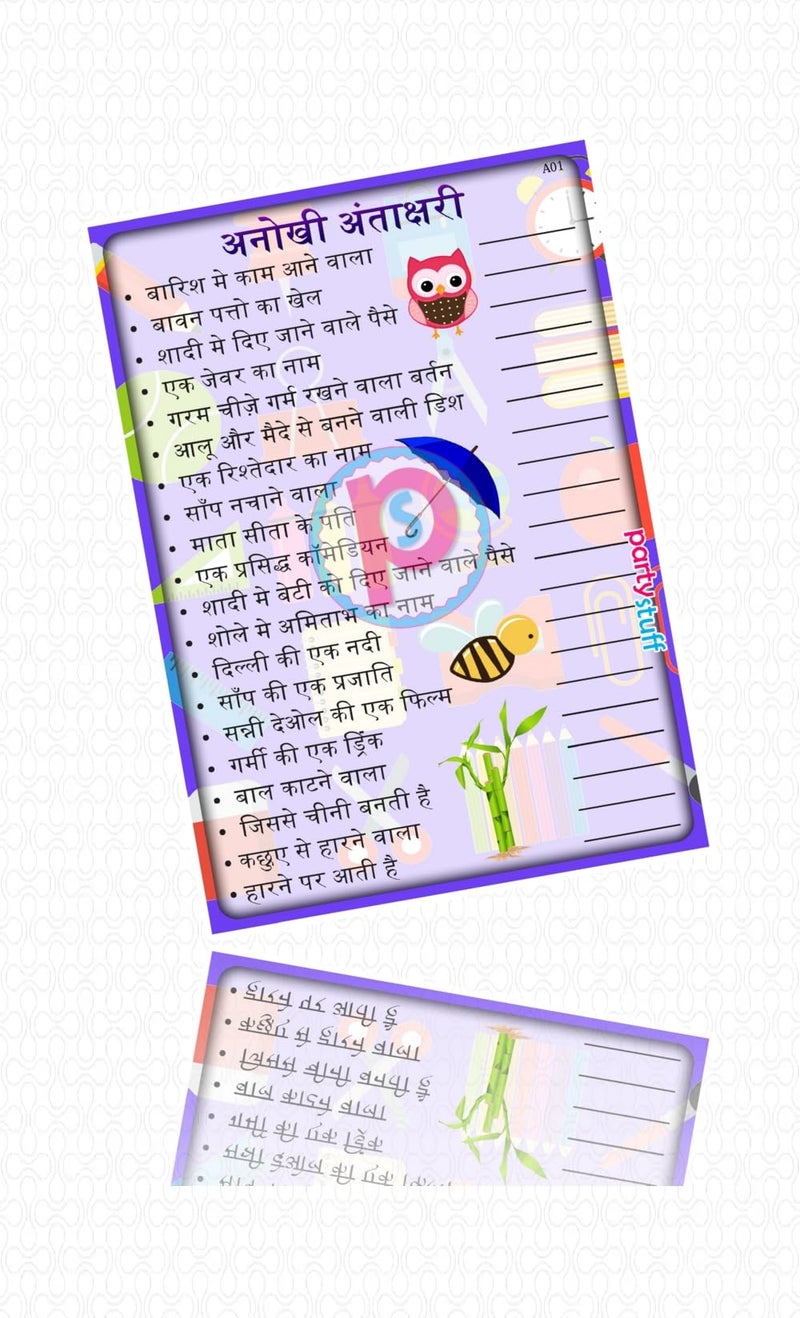 A01
अनोखी अंताक्षरी
• बारिश मे काम आने वाला
• बावन पत्तो का खेल
• शादी मे दिए जाने वाले पैसे
• एक जेवर का नाम
• गरम चीज़े गर्म रखने वाला बर्तन
• आलू और मैदे से बनने वाली डिश
• एक रिश्तेदार का नाम
• साँप नचाने वाला
• माता सीता के पति
• एक प्रसिद्ध कॉमेडियन
• शादी मे बेटी को दिए जाने वाले पैसे
• शोले मे अमिताभ का नाम
• दिल्ली की एक नदी
• साँप की एक प्रजाति
• सन्नी देओल की एक फिल्म
• गर्मी की एक ड्रिंक
• बाल काटने वाला
• जिससे चीनी बनती है
• कछुए से हारने वाला
• हारने पर आती है
ps
partystuff